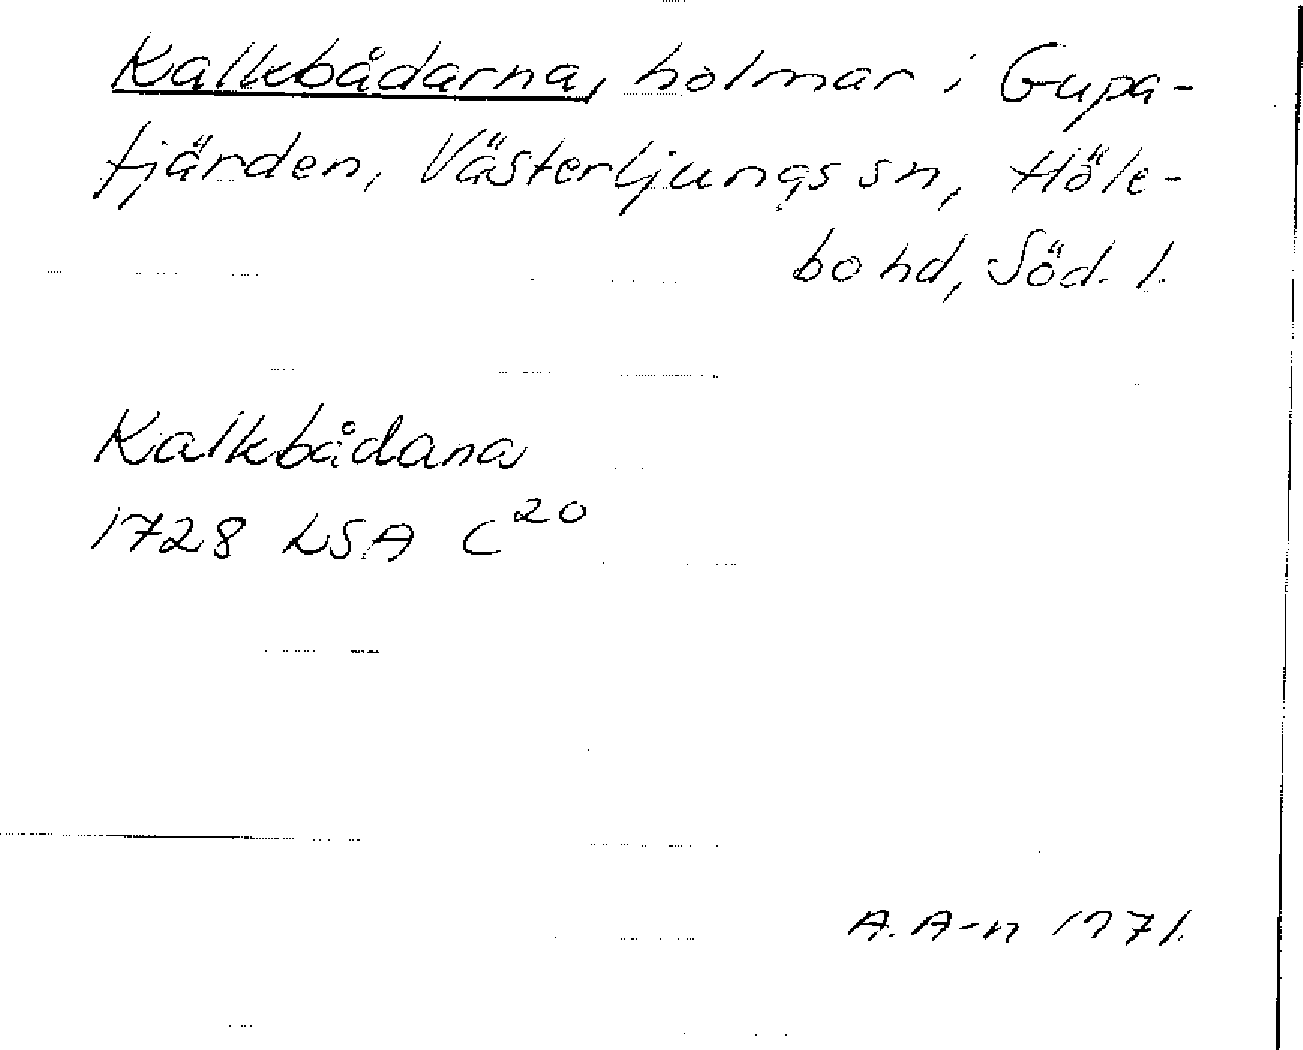 Kalkbådarna, holmar i Gupa-
fjärden, Västerljungs sn, Höle-
bo hd, Söd. l.
Kalkbådana
1728 LSA C20
A. A-n 1971.